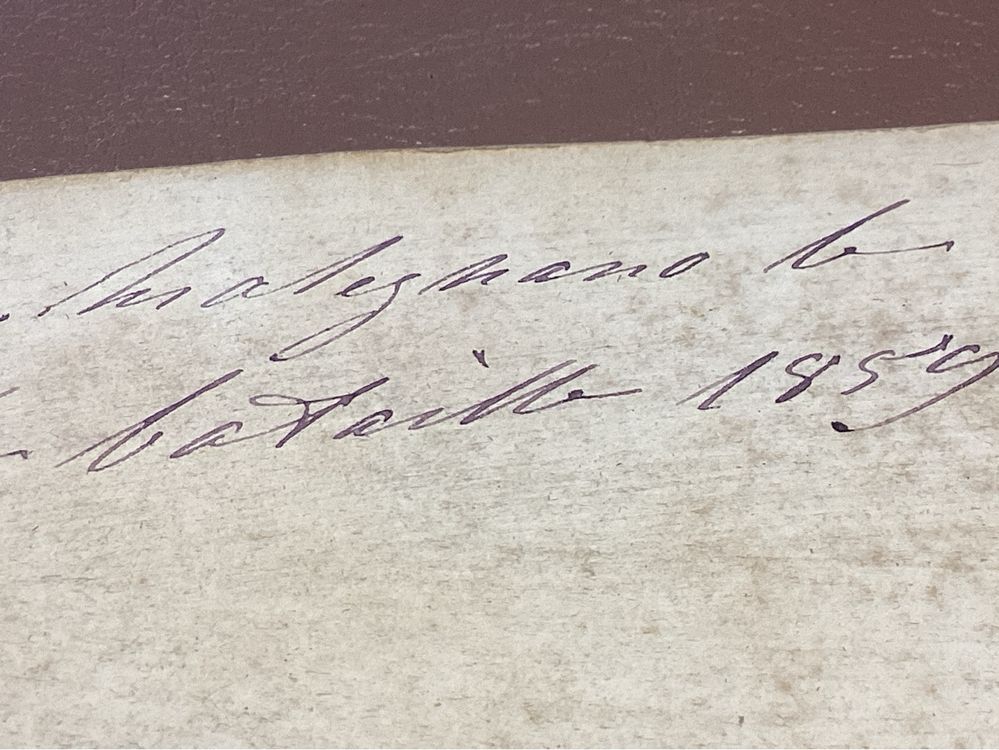 Malegnano le
bataille 1859